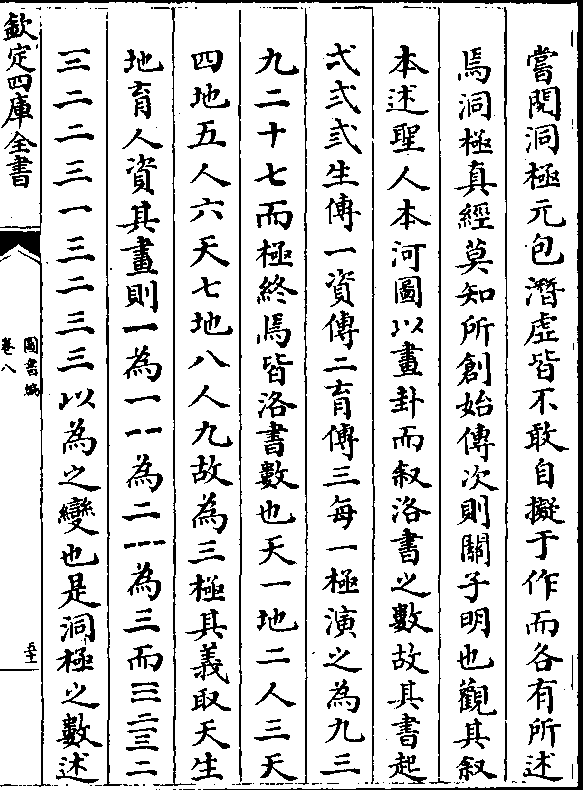 當閱洞極元包潛虛皆不敢自擬于作而各有所述
焉洞極真經莫知所創始傳次則關子明也觀其叙
本述聖人本河圖以畫卦而叙洛書之數故其書起
弌弍弎生傳一資傳二育傳三每一極演之為九三
九二十七而極終焉皆洛書數也天一地二人三天
四地五人六天七地八人九故為三極其義取天生
地育人資其畫則一為一 -- 為二 --- 為三而
三二二三一三二三三以為之變也是洞極之數述
欽定四庫全書
圖書編
卷八